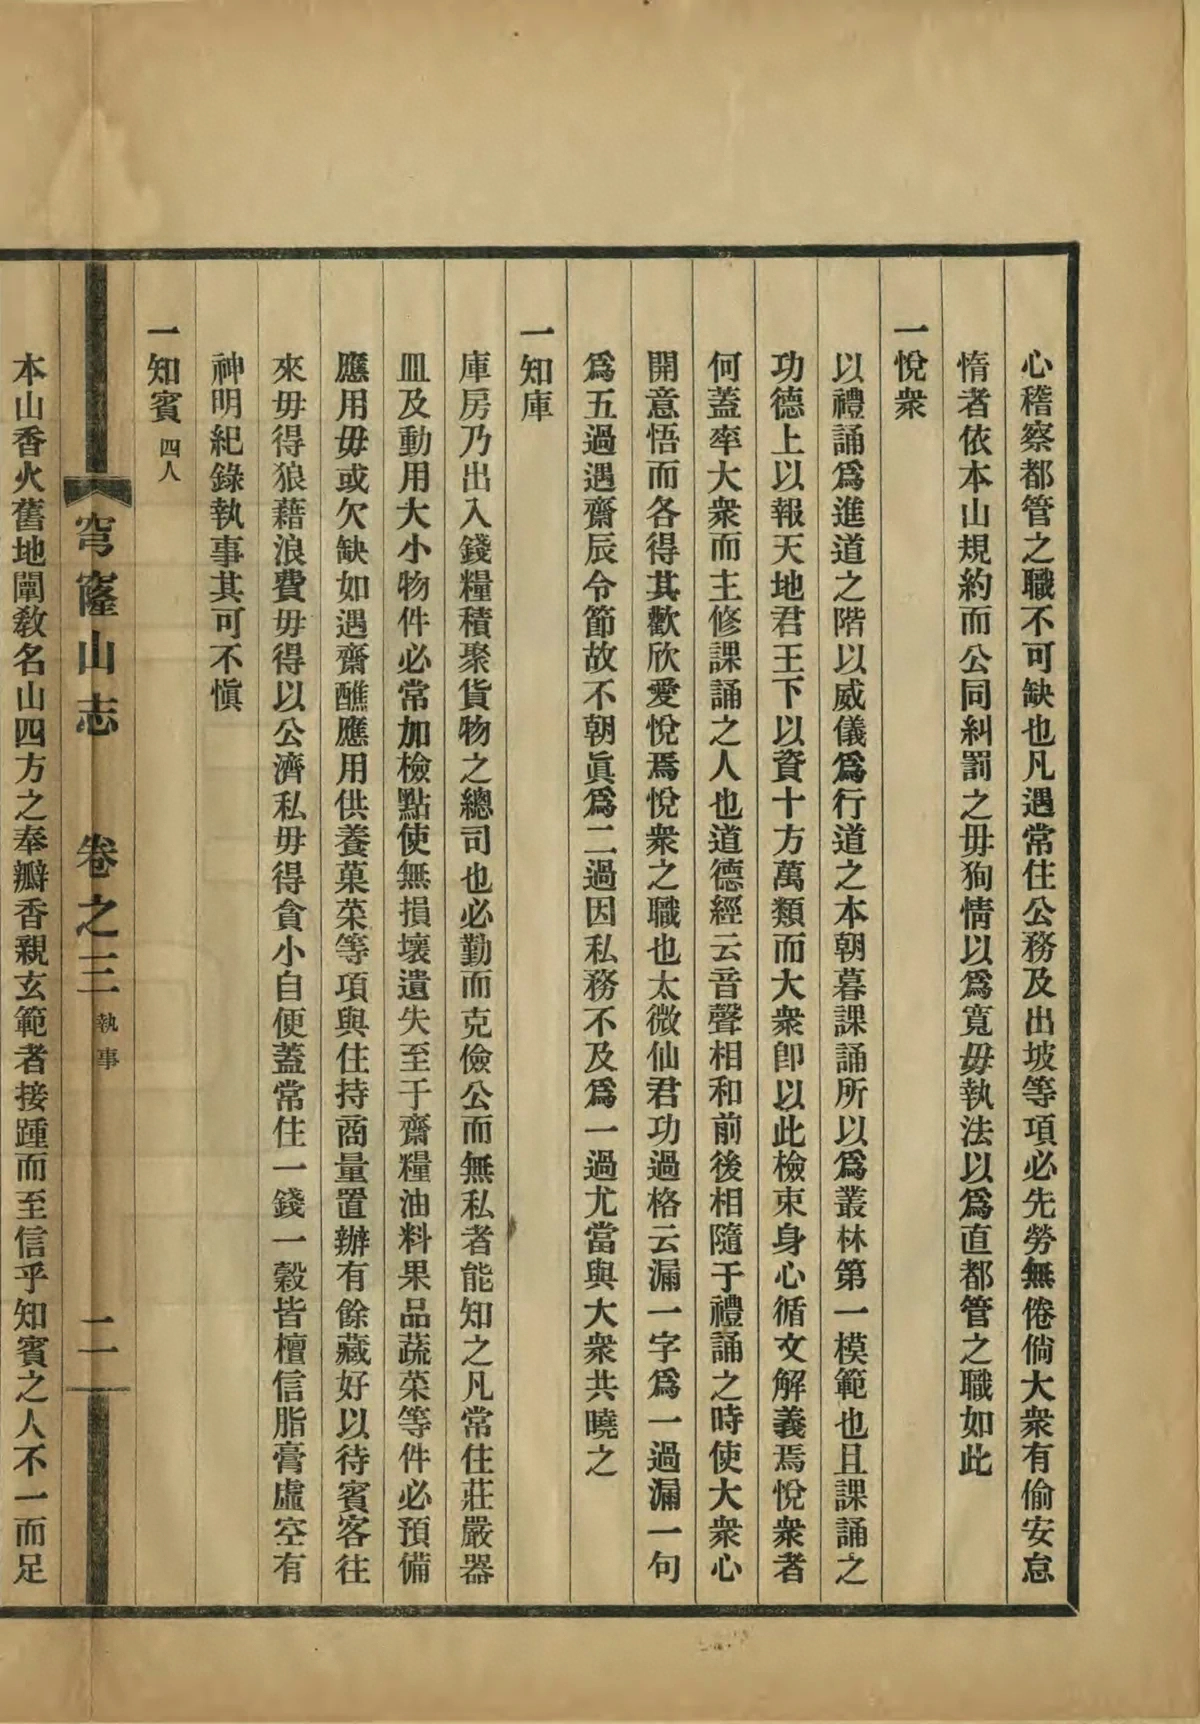 心稽察都管之職不可缺也凡遇常住公務及出坡等項必先勞無倦倘大衆有偷安怠
惰者依本山規約而公同糾罰之毋狥情以爲寬毋執法以爲直都管之職如此
一悅衆
以禮誦爲進道之階以威儀爲行道之本朝暮課誦所以爲叢林第一模範也且課誦之
功德上以報天地君王下以資十方萬類而大衆卽以此檢束身心循文解義焉悅衆者
何蓋率大衆而主修課誦之人也道德經云音聲相和前後相隨于禮誦之時使大衆心
開意悟而各得其歡欣愛悅焉悅衆之職也太微仙君功過格云漏一字爲一過漏一句
爲五過遇齋辰令節故不朝眞爲二過因私務不及爲一過尤當與大衆共曉之
一知庫
庫房乃出入錢糧積聚貨物之總司也必勤而克儉公而無私者能知之凡常住莊嚴器
皿及動用大小物件必常加檢點使無損壞遺失至于齋糧油料果品蔬菜等件必預備
應用毋或欠缺如遇齋醮應用供養菓菜等項與住持商量置辦有餘藏好以待賓客往
來毋得狼藉浪費毋得以公濟私毋得貪小自便蓋常住一錢一穀皆檀信脂膏虛空有
神明紀錄執事其可不愼
一知賓 四人
穹窿山志 卷之三 執事 二
本山香火舊地闡敎名山四方之奉瓣香親玄範者接踵而至信乎知賓之人不一而足